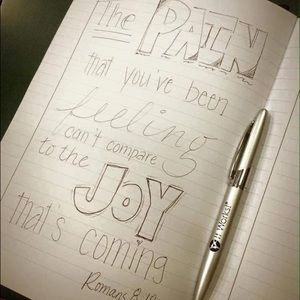 The PAIN
that you've been
feeling
can't compare
to the
JOY
that's coming
Romans 8:18
It Works!